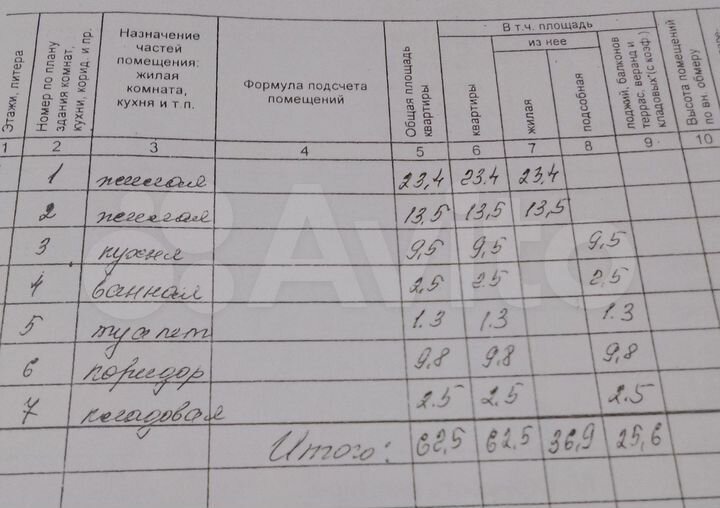 Этажи, литера
Номер по плану
здания комнат,
кухни, корид. и пр.
Назначение
частей
помещения:
жилая
комната,
кухня и т.п.
Формула подсчета
помещений
Общая площадь
квартиры
В т.ч. площадь
квартиры
из нее
жилая
подсобная
лоджий, балконов
террас, веранд и
кладовых (с коэф.)
Высота помещений
по вн. обмеру
1 2 3 4 5 6 7 8 9 10
1 жилая 23,4 23.4 23,4
2 жилая 13,5 13,5 13,5
3 кухня 9,5 9,5 9,5
4 ванная 2,5 2.5 2.5
5 туалет 1.3 1.3 1.3
6 коридор 9,8 9.8 9,8
7 кладовая 2.5 2.5 2.5
Итого: 62,5 62.5 36,9 25,6
Avito